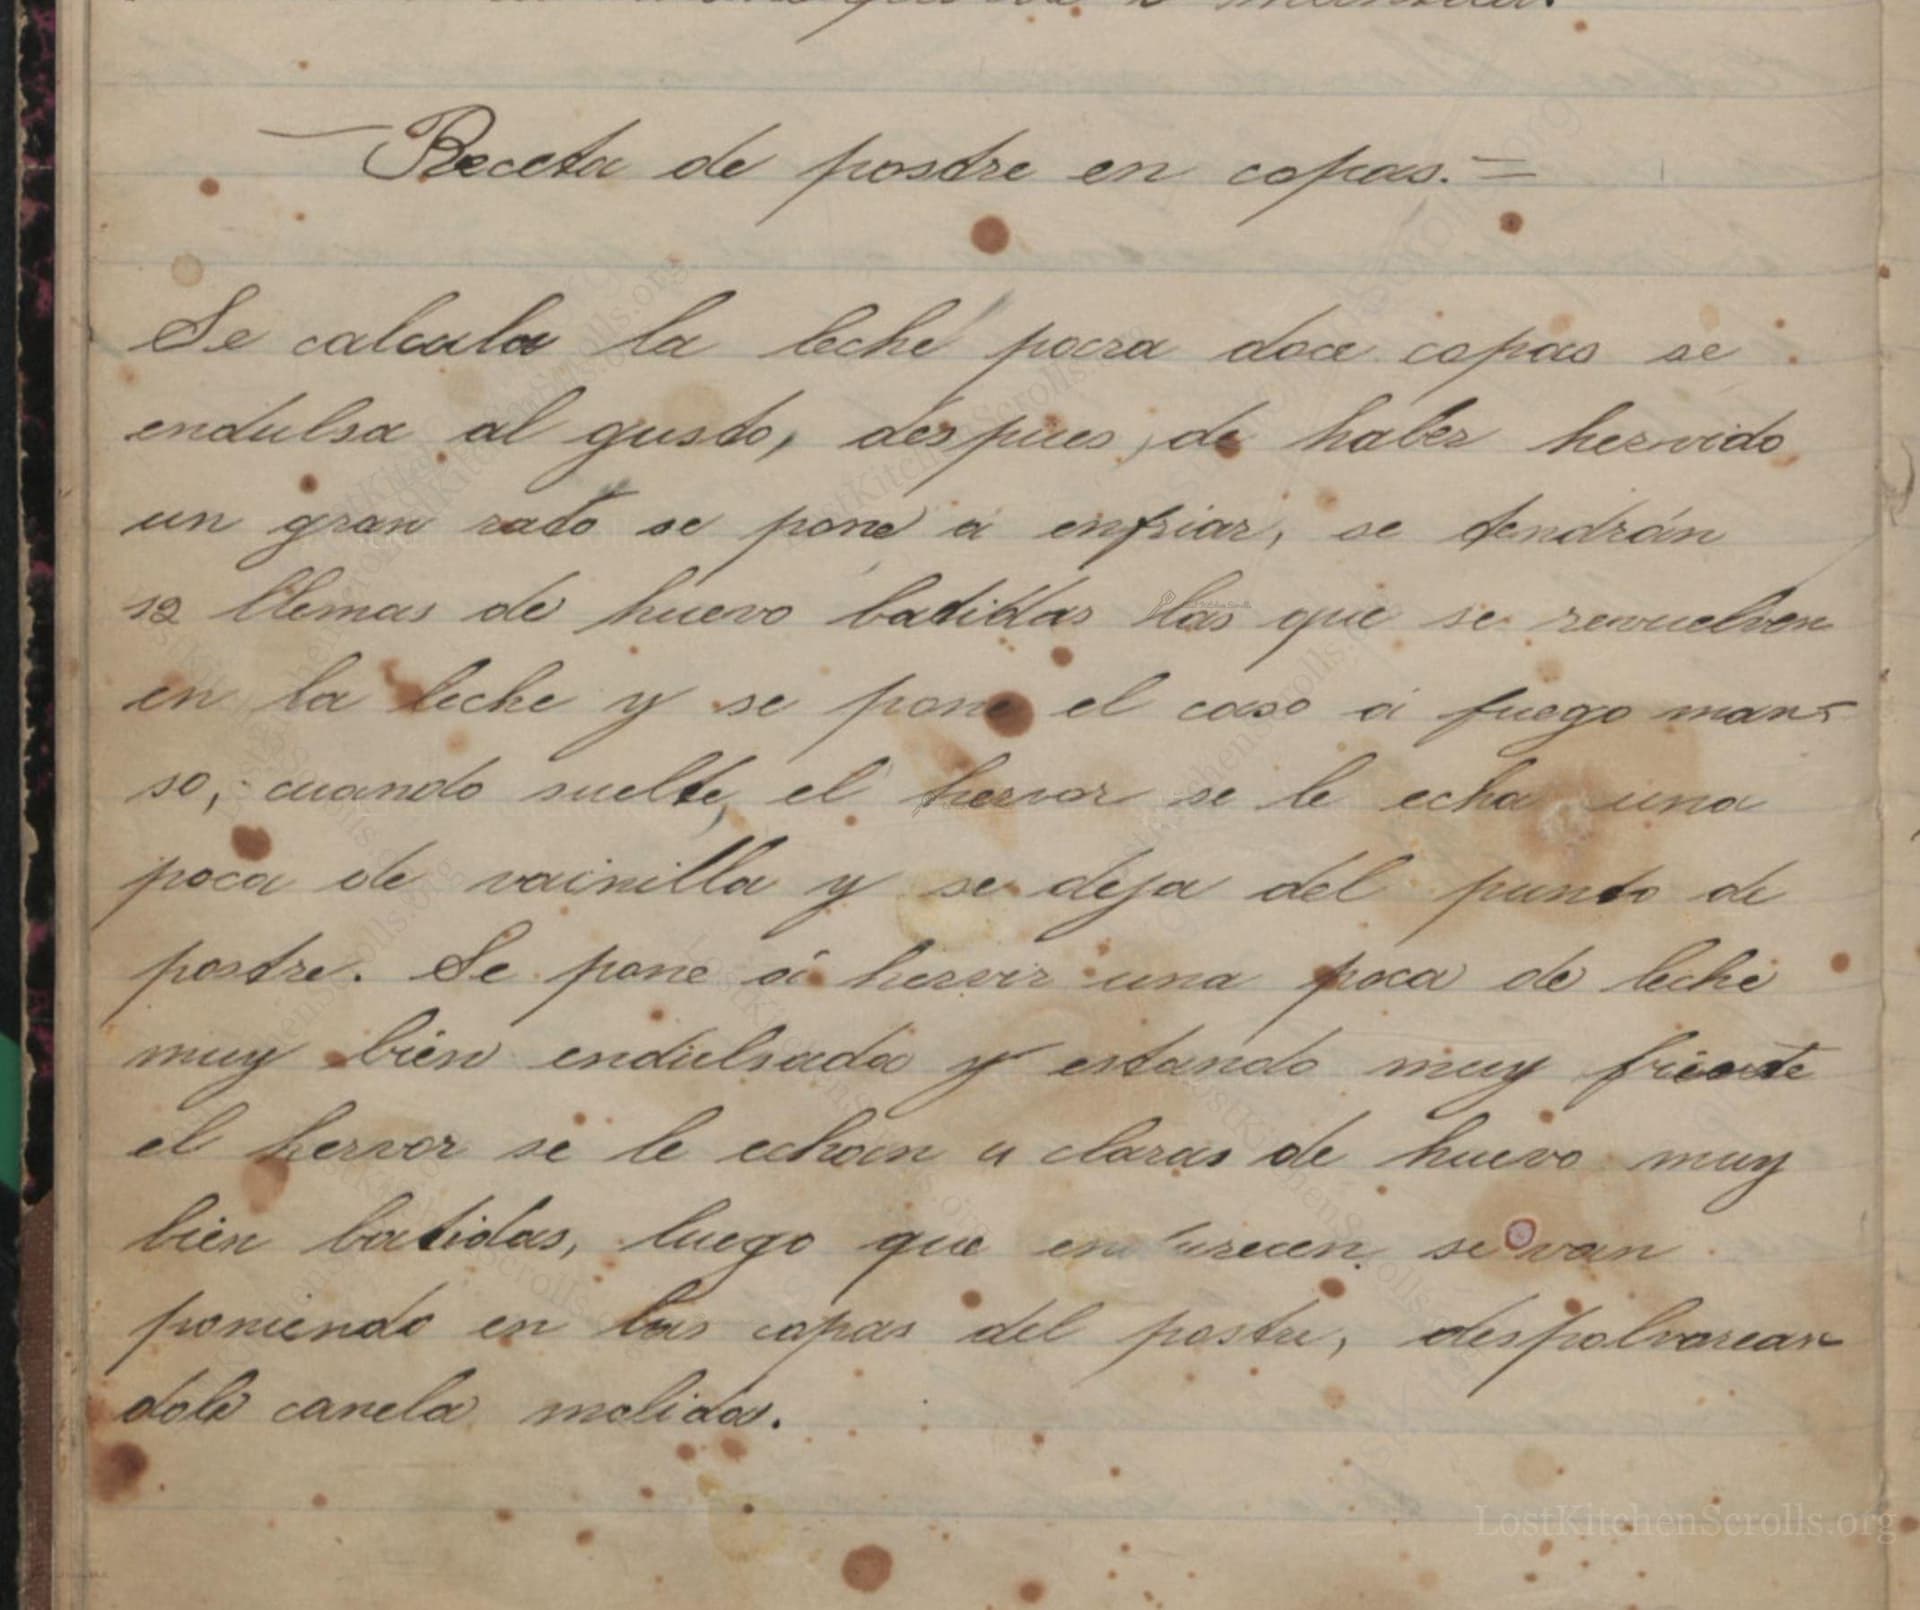 Receta de postre en copas.=
Se calcula la leche para doce copas se
endulsa al gusto, despues, de haber hervido
un gran rato se pone á enfriar, se tendrán
12 llemas de huevo batidas las que se revuelven
en la leche y se pone el caso á fuego man-
so, cuando suelte, el hervor se le echa una
poca de vainilla y se deja del punto de
postre. Se pone á hervir una poca de leche
muy bien endulsada y estando muy fuerte
el hervor se le echan 4 claras de huevo muy
bien batidas, luego que endurecen se van
poniendo en las copas del postre, despolvorean-
dole canela molida.
LostKitchenScrolls.org